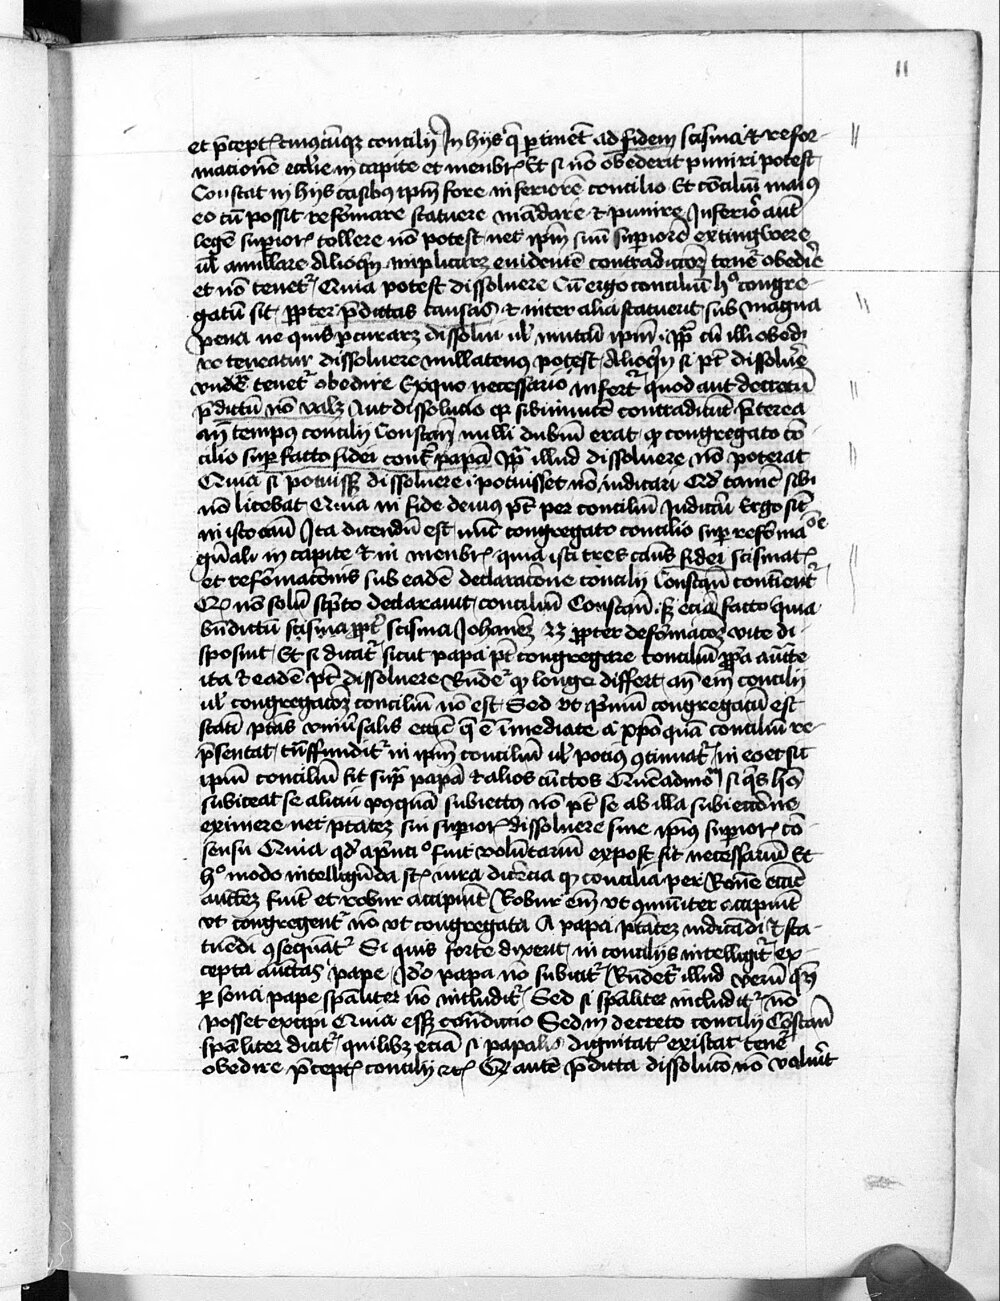 11
et p̄ceptꝭ cuiuscūqꝫ concilij In hijs q̄ ꝑtinēt ad fidem scisma et refor-
macionē eccl̄ie in capite et menbrꝭ Et si nō obederit puniri potest
Constat in hijs casibus ip̄m fore inferiorē concilio Et cōciliū maius
eo cū possit reformare statuere mādare et punire Inferior aūt
legē superiorꝭ tollere nō potest nec ip̄m suū superiorē extingwere
ul̄ anullare Alioqn̄ implicarꝫ euidentē contradictionē tenēt obedire
et nō tenet̄ Quia potest dissoluere Cū ergo conciliū hº congre-
gatū sit ꝓpter p̄dictas causas et inter alia statuerit sub magna
pena ne quis ꝓcurarꝫ dissolui ul̄ mutari ip̄m p̄p̄ cū illi obedi-
re teneatur dissoluere nullatenus potest Alioqn̄ si pt̄ dissoluē
vnde tenet̄ obedire Exquo necessario infert̄ quod aut decretū
p̄dictū nō valꝫ Aut dissolucio qꝫ sibiinuicē contradicūt Preterea
an̄ tempus concilij Constan̄ nulli dubiū erat qꝫ congregato cō-
cilio super facto fidei cont̄ papā p̄p̄ illud dissoluere nō poterat
Quia si potuissꝫ dissoluere potuisset nō iudicari Qd̄ tamē sibi
nō licebat Quia in fide deuius pt̄ per conciliū Iudicari Ergo sit̄
in isto casu Ita dicendū est nūc congregato concilio super reforma-
cōe
gn̄ali in capite et in menbrꝭ quia isti tres casus fidei scismatꝭ
et reformacōnis sub eadē declaracōne concilij Constan̄ continent̄
Et nō solū scripto declarauit conciliū Constan̄ sꝫ eciā facto quia
bn̄dictū scisma ꝓpt̄ scisma Iohanē 23 ꝓpter deformacōꝫ vite di-
sposuit Et si dicat̄ sicut papa pt̄ congregare conciliū ꝓpa auc̄te
ita et eadē pt̄ dissoluere Rūdet̄ qꝫ longe differt an̄ em̄ concilij
ul̄ congregacōꝫ conciliū nō est Sed vt primū congregatū est
stati ptās vniuersalis eccl̄ie q̄ ē īmediate a xpō quā conciliū re-
p̄sentat tn̄sfundit̄ in ip̄m conciliū ul̄ potius ꝯtinuat̄ in eo et sic
ipm̄ conciliū fit supra papā et alios cūctos Quēadmō si quis hō
subiceat se alicui postquā subiectus nō pt̄ se ab illa subiectōne
eximere nec ptātez sui superiorꝭ dissoluere sine ip̄ius superiorꝭ cō-
sensu Quia qd̄ a pⁿciº fuit voluntariū expost fit necessariū Et
hº modo intelligēda st̄ iura dicēcia qꝫ concilia per Rōnē eccl̄ie
auctez fiūt et robur accipiūt Robur em̄ vt ꝯmuniter accipiūt
vt congregent̄ nō vt congregata A papa ptātez iudicādi et sta-
tuēdi ꝯsequāt̄ Si quis forte dixerit in concilijs intelligit̄ ex-
cepta auctas pape Ideo papa nō subicit̄ Rūdet̄ illud verū qn̄
ꝑsona pape spāliter nō includit̄ Sed si spāliter includit̄ nō
posset excipi Quia essꝫ cōndictio Sed in decreto concilij Cōstan̄
spāliter dicit̄ quilibꝫ eciā si papalis dignitatꝭ existat tenet̄
obedire p̄ceptꝭ concilij etcꝭ Qr̄ autē p̄dicta dissolucō nō voluit